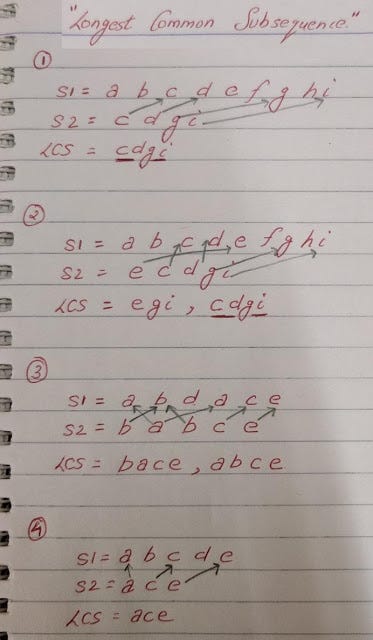 "Longest Common Subsequence."
①
S1 = a b c d e f g h i
S2 = c d g i
LCS = cdgi
②
S1 = a b c d e f g h i
S2 = e c d g i
LCS = egi, cdgi
③
S1 = a b d a c e
S2 = b a b c e
LCS = bace, abce
④
S1 = a b c d e
S2 = a c e
LCS = ace